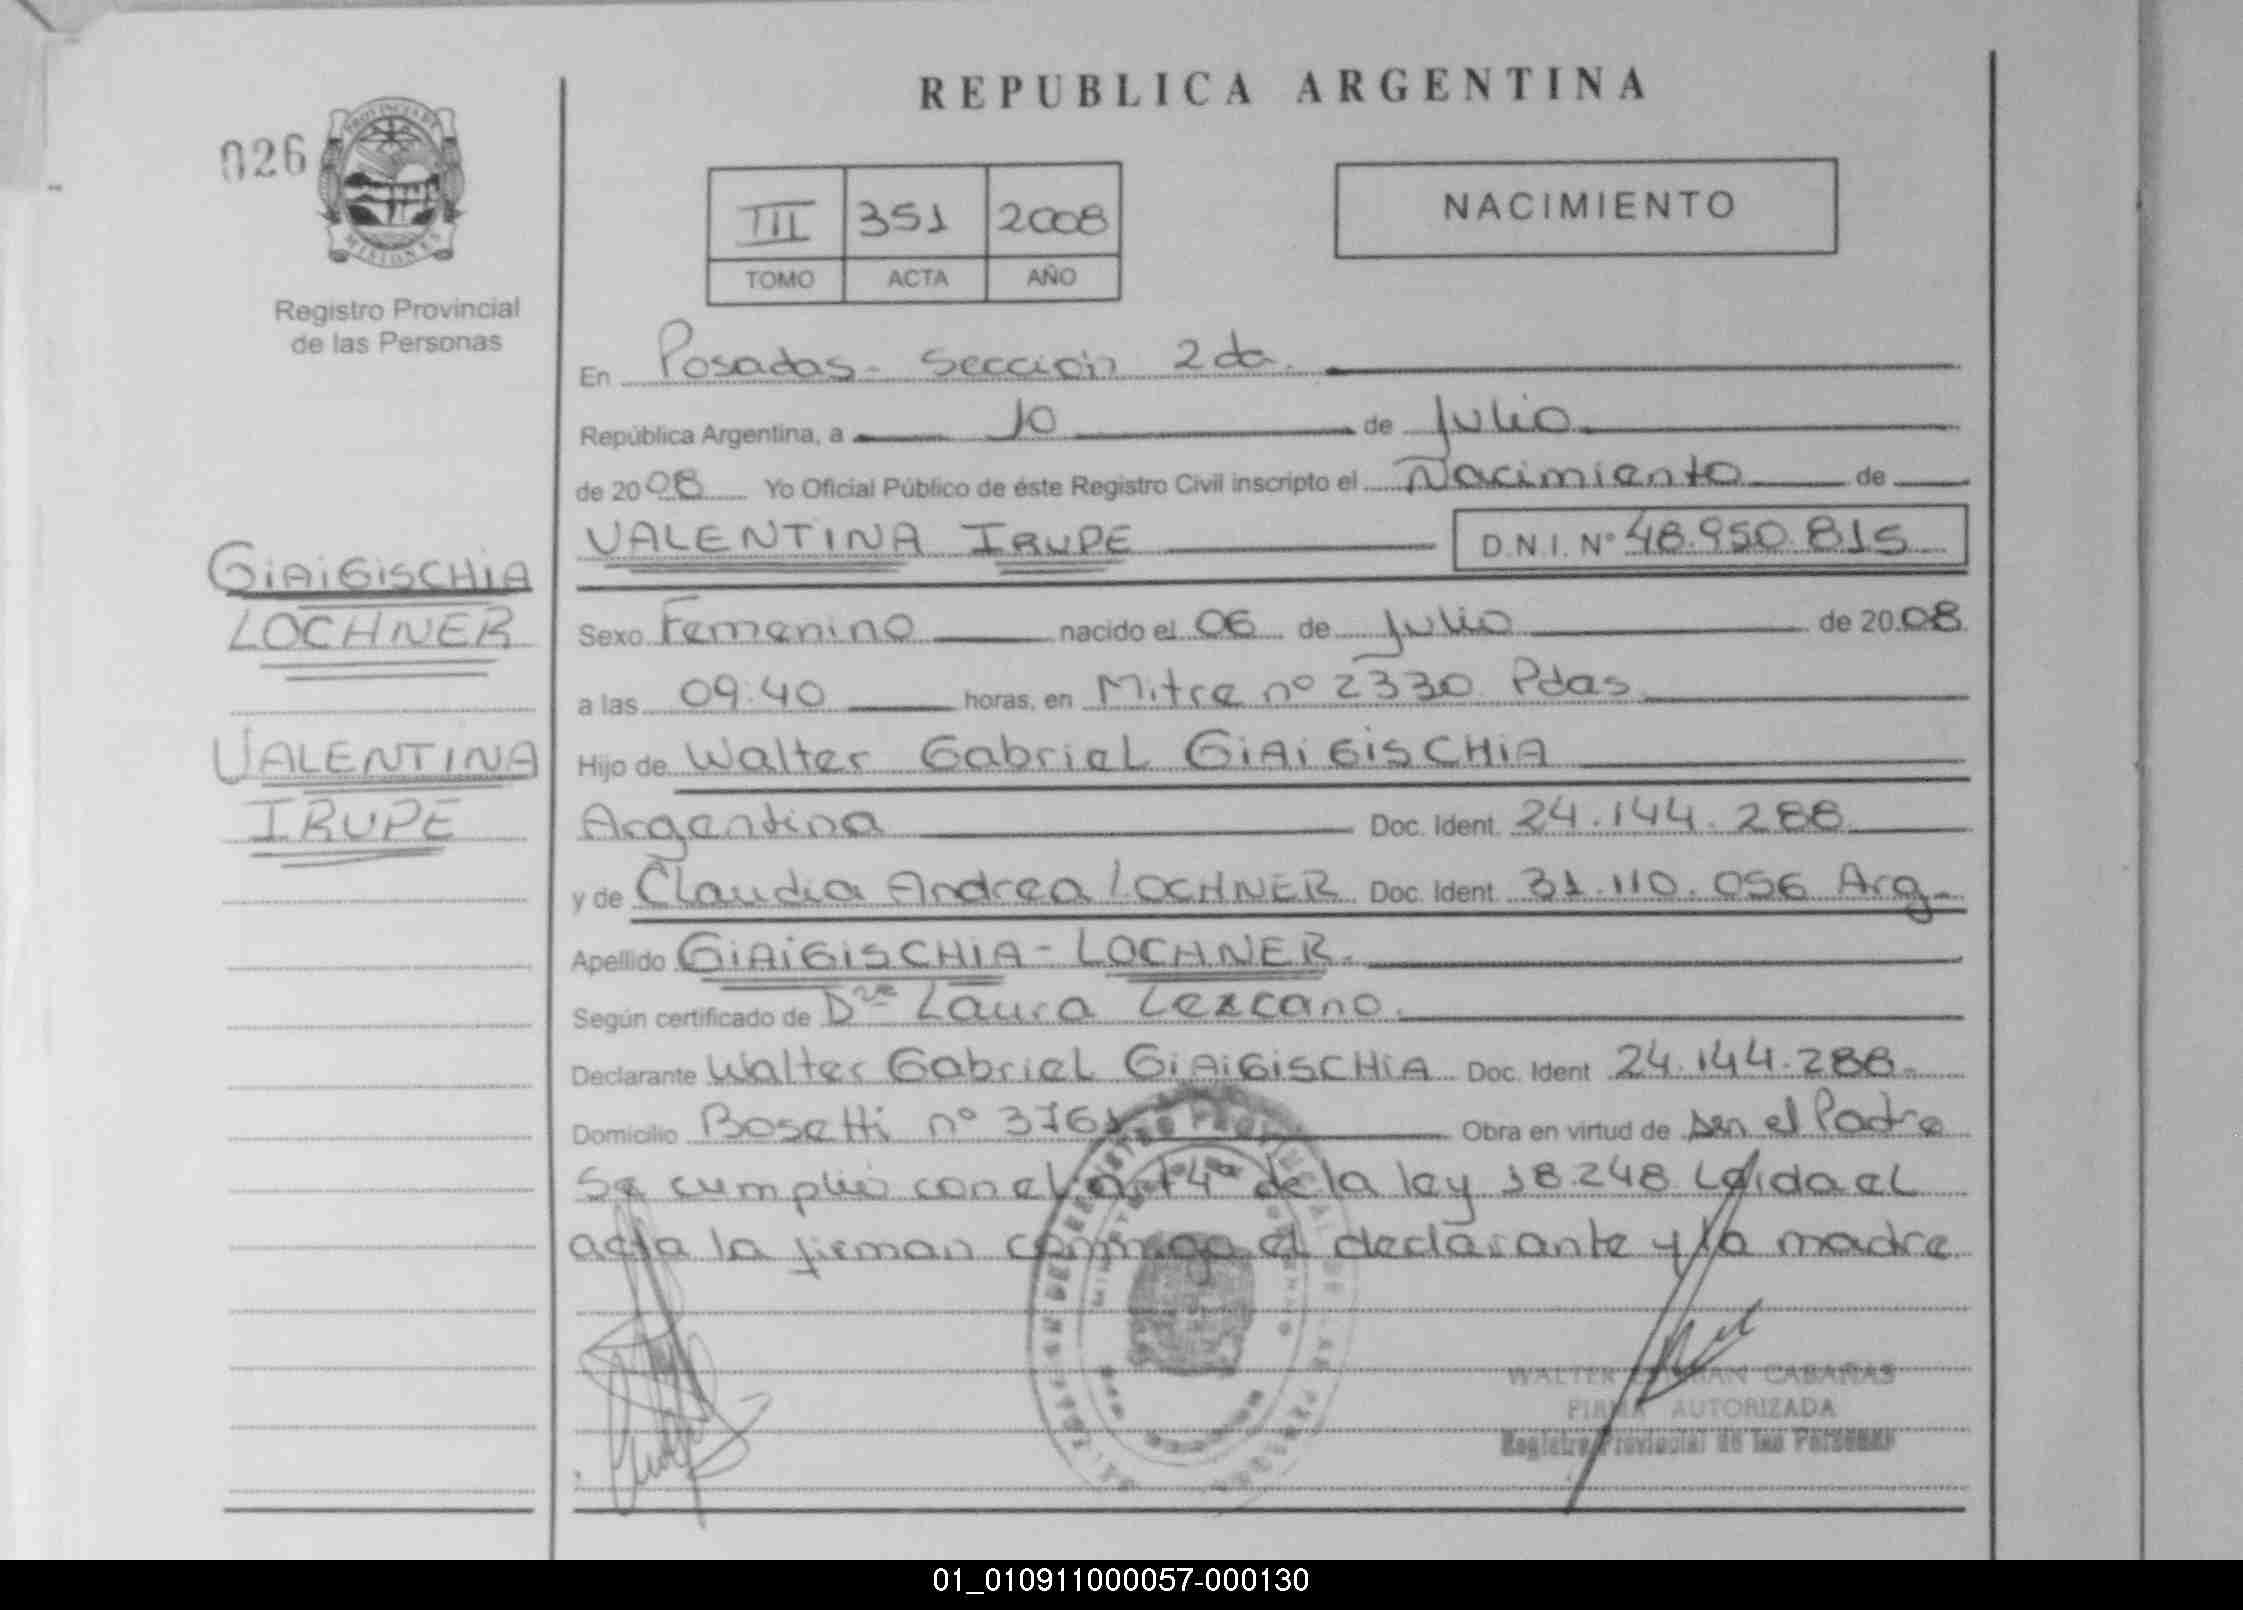 REPUBLICA ARGENTINA
026
PROVINCIA DE
MISIONES
Registro Provincial
de las Personas
III 351 2008
TOMO ACTA AÑO
NACIMIENTO
En Posadas - Sección 2da.
República Argentina, a 10 de Julio
de 2008 Yo Oficial Público de éste Registro Civil inscripto el Nacimiento de
VALENTINA IRUPE D.N.I. Nº 48.950.815
GIAIGISCHIA
LOCHNER
VALENTINA
IRUPE
Sexo Femenino nacido el 06 de Julio de 2008
a las 09:40 horas, en Mitre nº 2330 Pdas
Hijo de Walter Gabriel GIAIGISCHIA
Argentina Doc. Ident. 24.144.288
y de Claudia Andrea LOCHNER Doc. Ident. 31.110.056 Arg-
Apellido GIAIGISCHIA - LOCHNER.
Según certificado de Dra Laura Lezcano.
Declarante Walter Gabriel GIAIGISCHIA Doc. Ident 24.144.288.
Domicilio Bosetti nº 3761 Obra en virtud de ser el Padre
Se cumplió con el art 4º de la ley 18.248 Leida el
acta la firman conmigo el declarante y la madre
WALTER CABAÑAS
FIRMA AUTORIZADA
Registro Provincial de las Personas
01_010911000057-000130